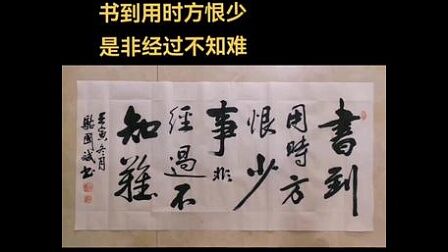 书到用时方恨少
是非经过不知难
書到
用時方
恨少
事非
經過不
知難
壬寅冬月
國斌书